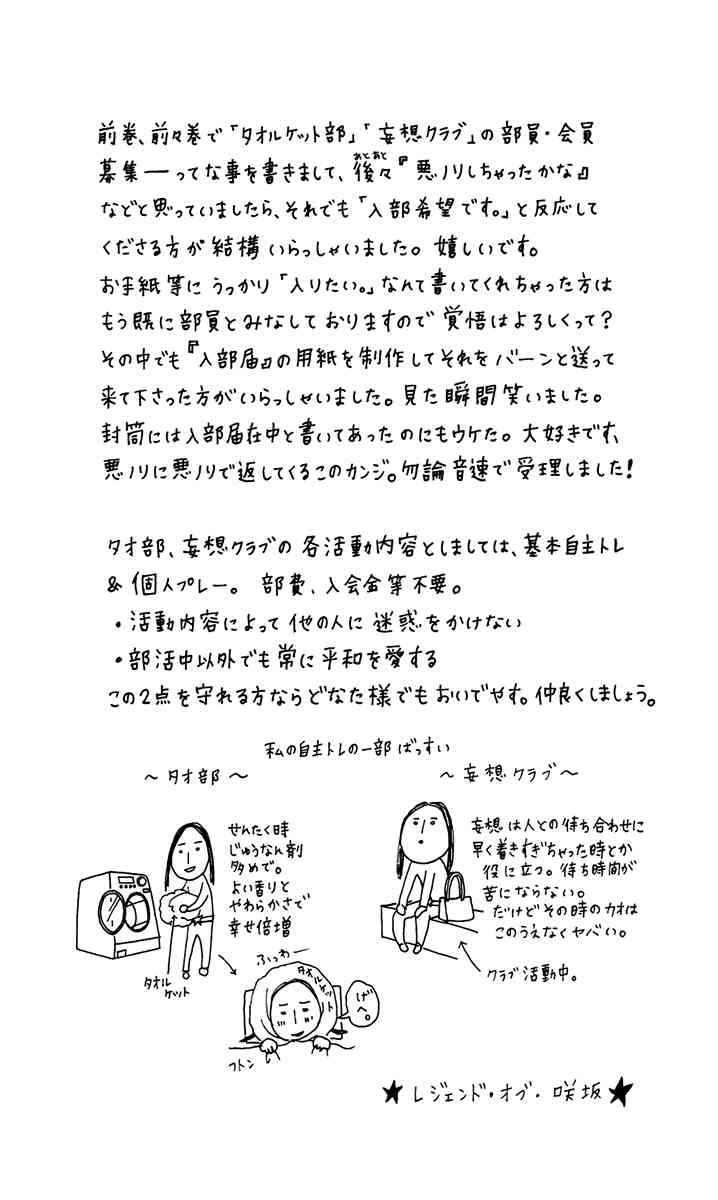 前巻、前々巻で「タオルケット部」「妄想クラブ」の部員・会員
募集ーってな事を書きまして、後々『悪ノリしちゃったかな』
あとあと
などと思っていましたら、それでも「入部希望です。」と反応して
くださる方が結構いらっしゃいました。嬉しいです。
お手紙等にうっかり「入りたい。」なんて書いてくれちゃった方は
もう既に部員とみなしておりますので覚悟はよろしくって?
その中でも『入部届』の用紙を制作してそれをバーンと送って
来て下さった方がいらっしゃいました。見た瞬間笑いました。
封筒には入部届在中と書いてあったのにもウケた。大好きです、
悪ノリに悪ノリで返してくるこのカンジ。勿論音速で受理しました!
タオ部、妄想クラブの各活動内容としましては、基本自主トレ
&個人プレー。部費、入会金等不要。
・活動内容によって他の人に迷惑をかけない
・部活中以外でも常に平和を愛する
この2点を守れる方ならどなた様でもおいでやす。仲良くしましょう。
私の自主トレの一部ばっすい
〜タオ部〜
せんたく時
じゅうなん剤
多めで。
よい香りと
やわらかさで
幸せ倍増
タオル
ケット
ふっわー
タオルケット
げへ。
フトン
〜妄想クラブ〜
妄想は人との待ち合わせに
早く着きすぎちゃった時とか
役に立つ。待ち時間が
苦にならない。
だけどその時のカオは
このうえなくヤバい。
クラブ活動中。
★レジェンド・オブ・咲坂★